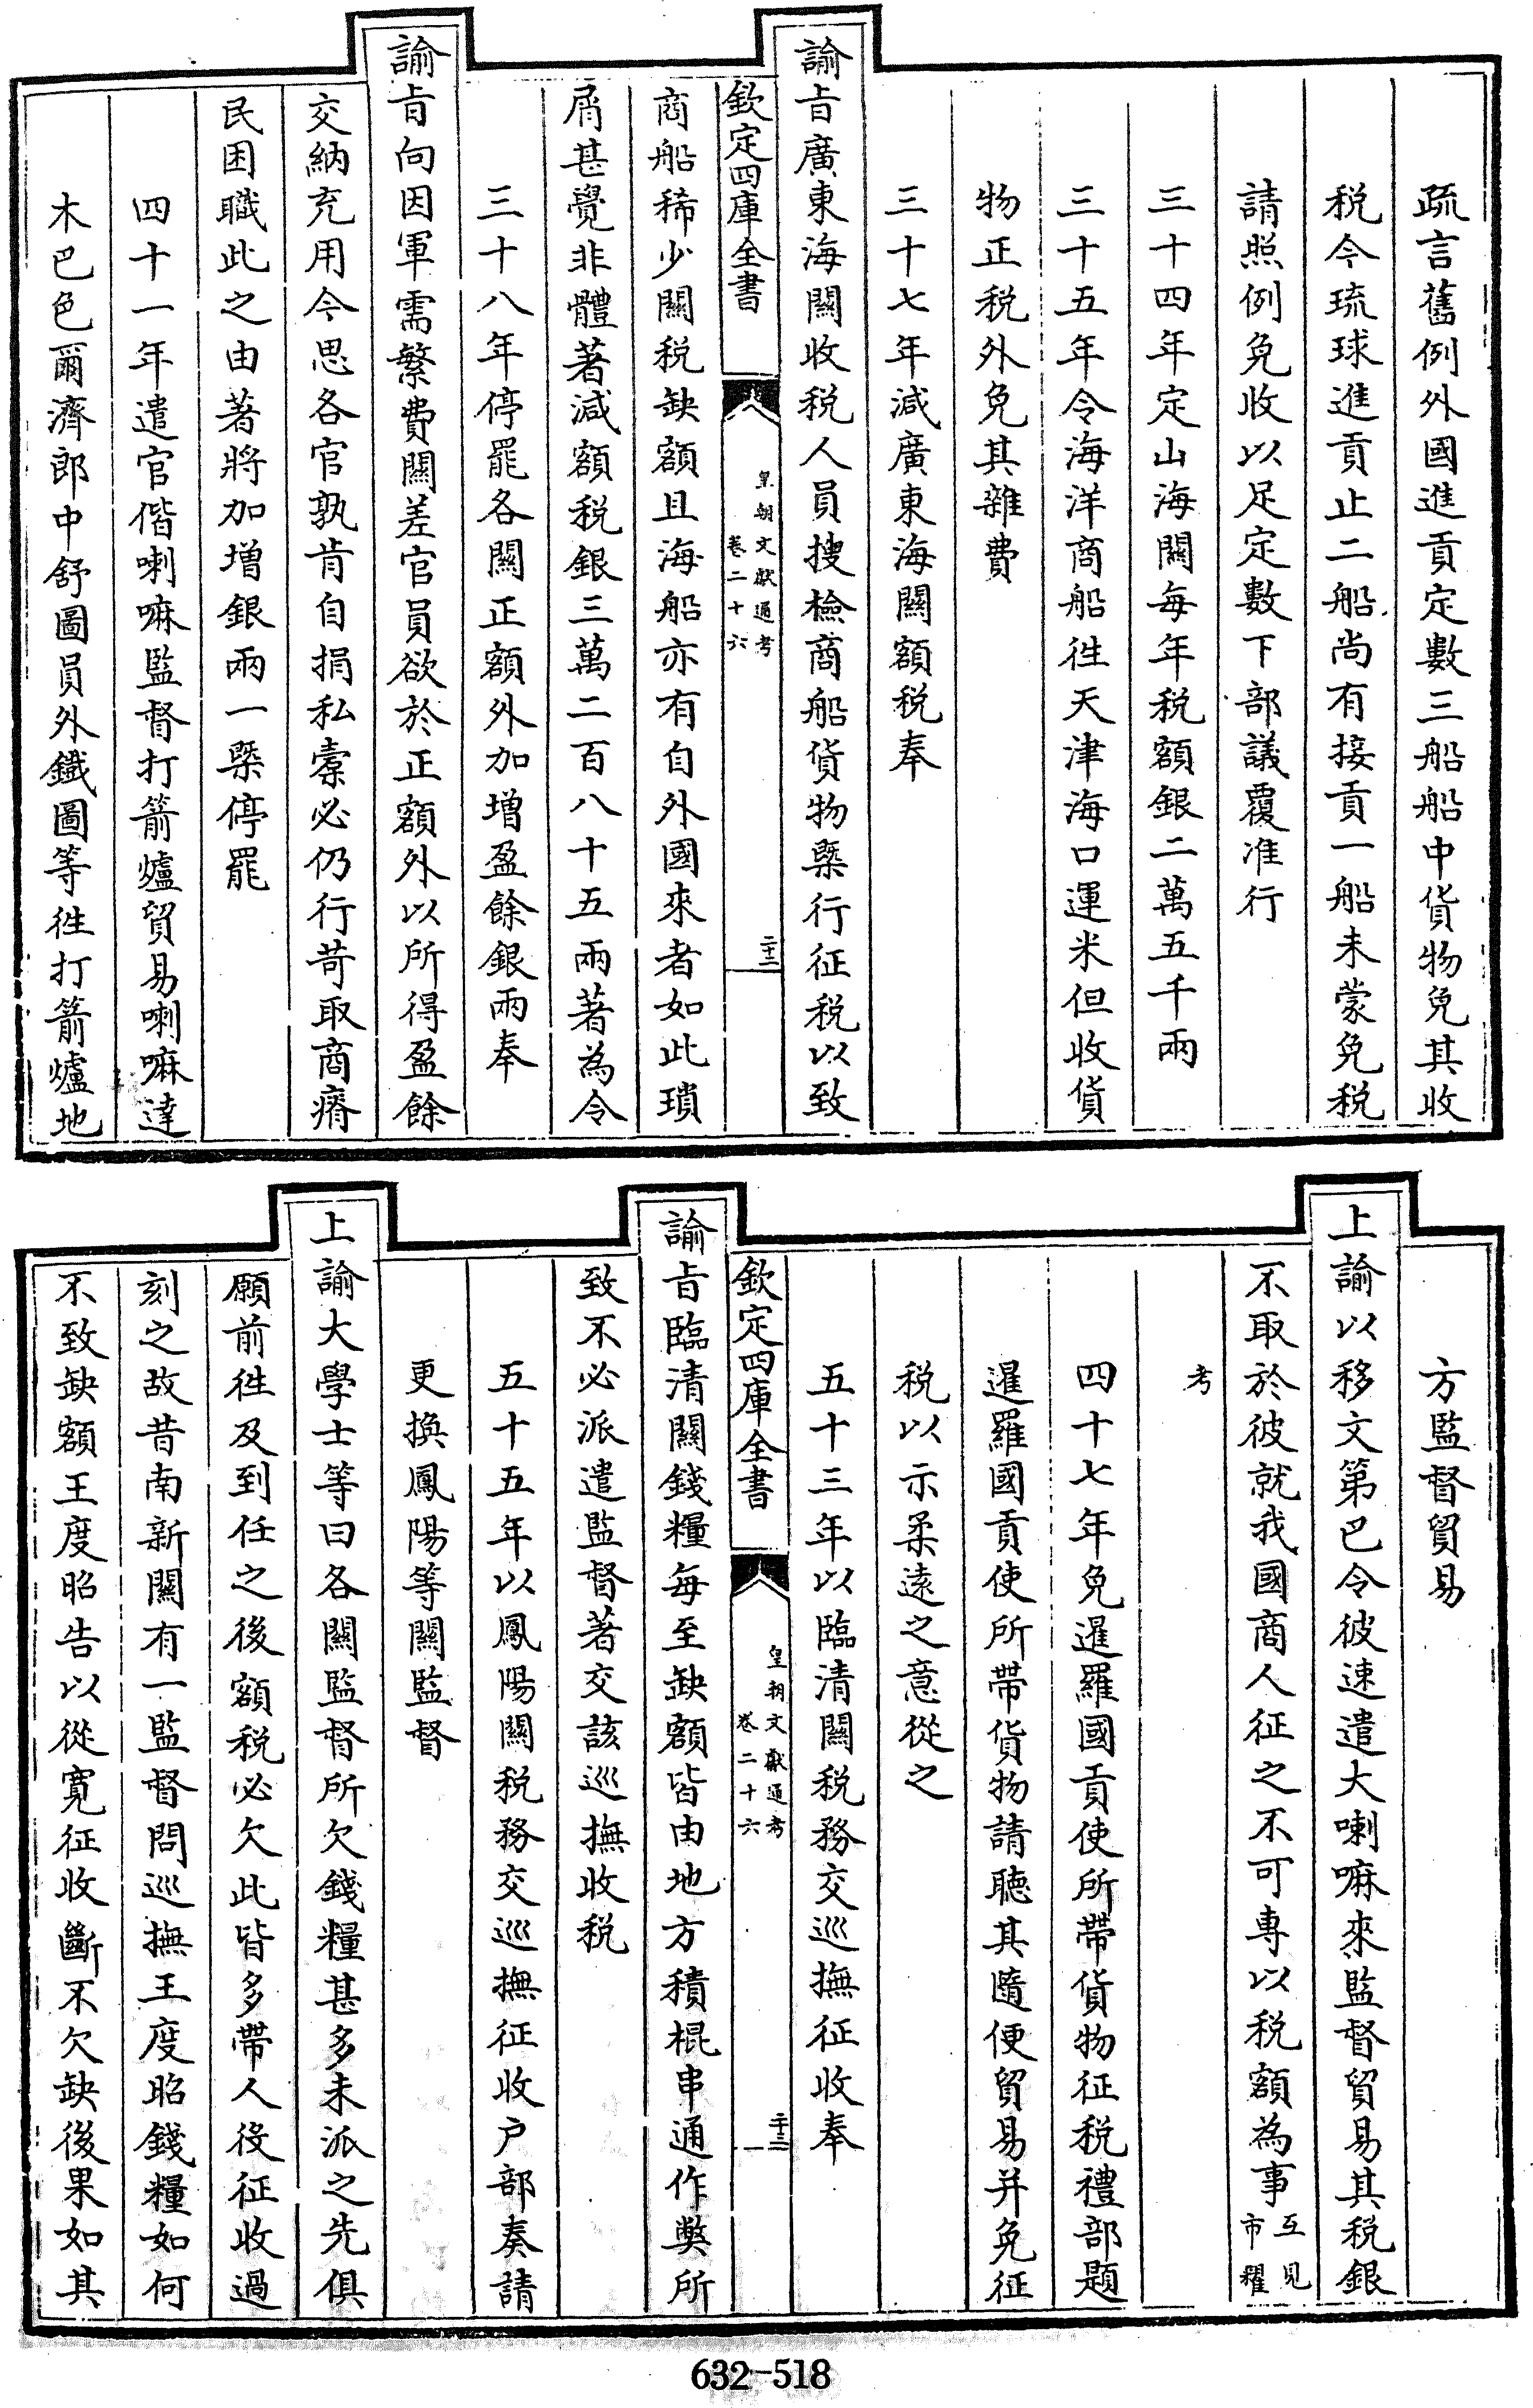 疏言舊例外國進貢定數三船船中貨物免其收
税今琉球進貢止二船尚有接貢一船未蒙免税
請照例免收以足定數下部議覆准行
三十四年定山海關每年税額銀二萬五千兩
三十五年令海洋商船徃天津海口運米但收貨
物正税外免其雜費
三十七年減廣東海關額税奉
諭旨廣東海關收税人員搜檢商船貨物槩行征税以致
欽定四庫全書
皇朝文獻通考
卷二十六
二十二
商船稀少關税缺額且海船亦有自外國來者如此瑣
屑甚覺非體著減額税銀三萬二百八十五兩著為令
三十八年停罷各關正額外加增盈餘銀兩奉
諭旨向因軍需繁費關差官員欲於正額外以所得盈餘
交納充用今思各官孰肯自捐私槖必仍行苛取商瘠
民困職此之由著將加增銀兩一槩停罷
四十一年遣官偕喇嘛監督打箭爐貿易喇嘛達
木巴色爾濟郎中舒圖員外鐵圖等徃打箭爐地
方監督貿易
上諭以移文第巴令彼速遣大喇嘛來監督貿易其税銀
不取於彼就我國商人征之不可專以税額為事互見市糴
考
四十七年免暹羅國貢使所帶貨物征税禮部題
暹羅國貢使所帶貨物請聽其隨便貿易并免征
税以示柔遠之意從之
五十三年以臨清關税務交巡撫征收奉
欽定四庫全書
皇朝文獻通考
卷二十六
二十三
諭旨臨清關錢糧每至缺額皆由地方積棍串通作獘所
致不必派遣監督著交該巡撫收税
五十五年以鳳陽關税務交巡撫征收户部奏請
更換鳳陽等關監督
上諭大學士等曰各關監督所欠錢糧甚多未派之先俱
願前徃及到任之後額税必欠此皆多帶人役征收過
刻之故昔南新關有一監督問巡撫王度昭錢糧如何
不致缺額王度昭告以從寬征收斷不欠缺後果如其
632-518